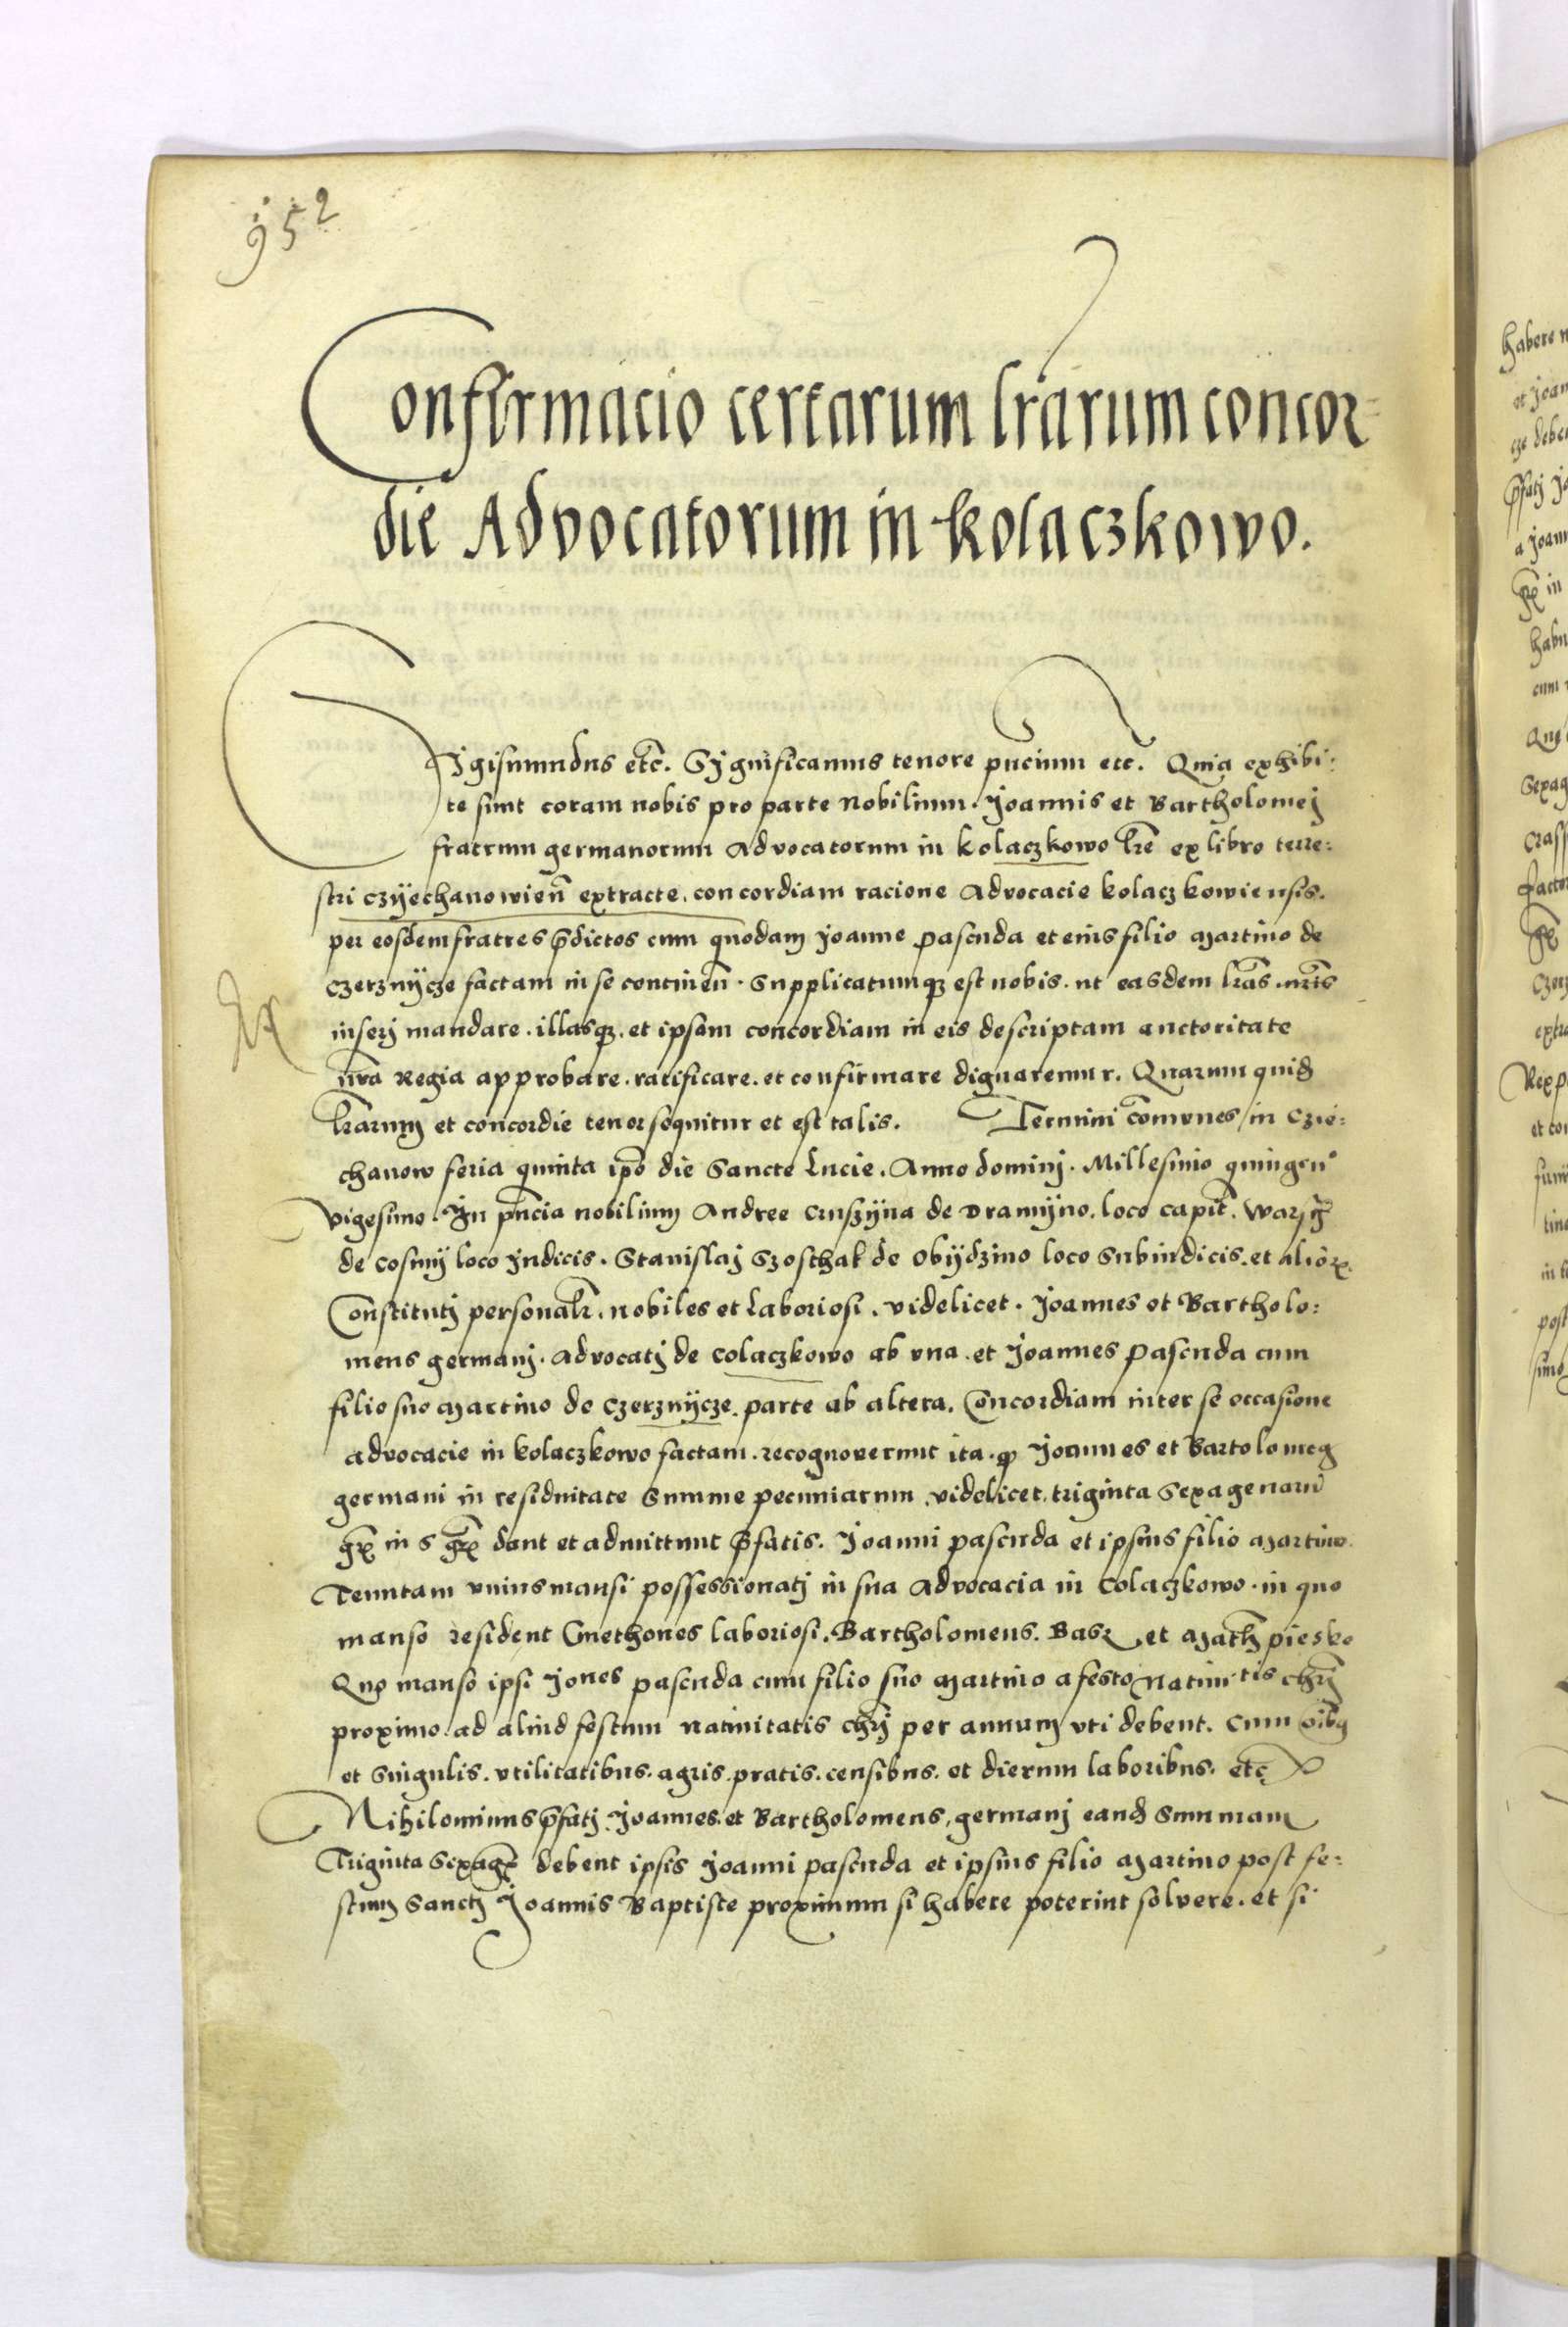 952
Confirmacio certarum lrarum concor=
die Advocatorum in Kolaczkowo.
Sigismundus etc. Sygnificamus tenore pncium etc. Quia exhibi:
te sunt coram nobis pro parte Nobilium. Joannis et Bartholomej
fratrum germanorum Advocatorum in Kolaczkowo lre ex libro terre:
stri czÿechanowien extracte, concordiam racione Advocacie kolaczkowiensis.
per eosdem fratres pdictos cum quodam Joanne pascuda et eius filio Martino de
Czerznÿcze factam in se continen. Supplicatumq est nobis. ut easdem lras. nris
inserj mandare. illasq. et ipsam concordiam in eis descriptam auctoritate
nra Regia approbare. ratificare. et confirmare dignaremur. Quarum quid
lrarum et concordie tenor sequitur et est talis. Termini comunes in Czie:
chanow feria quinta ipo die Sancte Lucie. Anno dominj. Millesimo quingen
vigesimo. In pncia nobilium Andree Cruszÿna de Dramÿno. loco capit.
de Cosmÿ loco Judicis. Stanislaj Szosthak de Obÿdzino loco Subiudicis. et alior.
Constitutj personalr. nobiles et Laboriosi. videlicet. Joannes et Bartholo:
meus germanj. advocatj de Colaczkowo ab vna. et Joannes Pascuda cum
filio suo Martino de Czerznÿcze. parte ab altera. Concordiam inter se occasione
advocacie in kolaczkowo factam. recognoverunt ita. q Joannes et Bartolomeg
germani in residuitate Summe pecuniarum. videlicet. triginta Sexagenaru
gr in s gr dant et admittunt pfatis. Joanni pascuda et ipsius filio Martino.
Tenutam vnius mansi possessionatj in sua Advocacia in Colaczkowo. in quo
manso resident Cmethones laboriosi. Bartholomeus. et Math pieske
Quo manso ipsi Jones pascuda cum filio suo Martino a festo Natiuitis chrj
proximo. ad aliud festum natiuitatis chrj per annum vti debent. cum oibg
et Singulis. vtilitatibus. agris. pratis. censibus. et dierum laboribus. etc
Nihilominus pfatj Joannes. et Bartholomeus, germanj eand Summam
Triginta Sexag debent ipsis Joanni pascuda et ipsius filio Martino post fe:
stum Sanctj Joannis Baptiste proximum si habere poterint solvere. et si